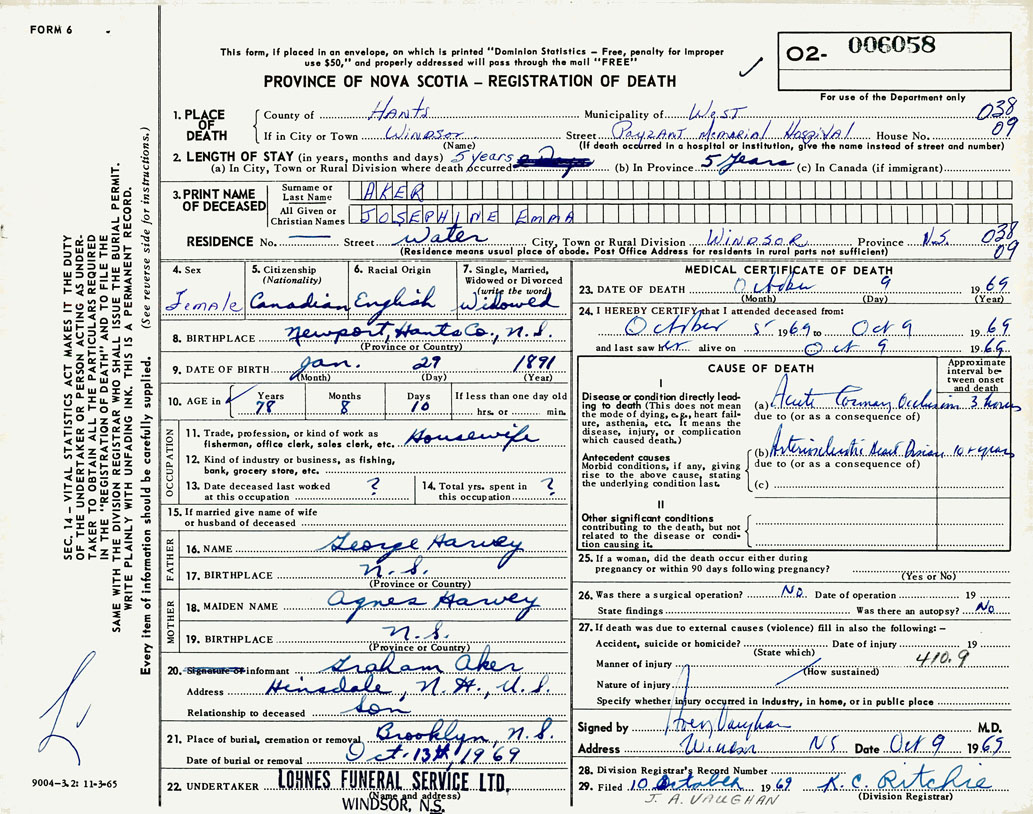 FORM 6
This form, if placed in an envelope, on which is printed "Dominion Statistics – Free, penalty for improper
use $50," and properly addressed will pass through the mail "FREE"
PROVINCE OF NOVA SCOTIA – REGISTRATION OF DEATH
O2- 006058
For use of the Department only
1. PLACE OF DEATH
County of Hants Municipality of West 038
If in City or Town Windsor Street Payzant Memorial Hospital House No. 09
(Name) (If death occurred in a hospital or institution, give the name instead of street and number)
2. LENGTH OF STAY (in years, months and days) 5 years
(a) In City, Town or Rural Division where death occurred (b) In Province 5 years (c) In Canada (if immigrant)
3. PRINT NAME OF DECEASED
Surname or Last Name AKER
All Given or Christian Names JOSEPHINE EMMA
RESIDENCE No. — Street Water City, Town or Rural Division WINDSOR Province N.S. 038
09
(Residence means usual place of abode. Post Office Address for residents in rural parts not sufficient)
4. Sex
Female
5. Citizenship
(Nationality)
Canadian
6. Racial Origin
English
7. Single, Married,
Widowed or Divorced
(write the word)
Widowed
8. BIRTHPLACE Newport, Hants Co., N.S.
(Province or Country)
9. DATE OF BIRTH Jan. 29 1891
(Month) (Day) (Year)
10. AGE in
Years 78
Months 8
Days 10
If less than one day old
hrs. or min.
OCCUPATION
11. Trade, profession, or kind of work as
fisherman, office clerk, sales clerk, etc. Housewife
12. Kind of industry or business, as fishing,
bank, grocery store, etc.
13. Date deceased last worked
at this occupation ?
14. Total yrs. spent in
this occupation ?
15. If married give name of wife
or husband of deceased
FATHER
16. NAME George Harvey
17. BIRTHPLACE N.S.
(Province or Country)
MOTHER
18. MAIDEN NAME Agnes Harvey
19. BIRTHPLACE N.S.
(Province or Country)
20. Signature of informant Graham Aker
Address Hinsdale, N.H., U.S.
Relationship to deceased Son
21. Place of burial, cremation or removal Brooklyn, N.S.
Date of burial or removal Oct. 13th, 1969
22. UNDERTAKER LOHNES FUNERAL SERVICE LTD.
(Name and address)
WINDSOR, N.S.
MEDICAL CERTIFICATE OF DEATH
23. DATE OF DEATH October 9 1969
(Month) (Day) (Year)
24. I HEREBY CERTIFY that I attended deceased from:
October 5 1969 to Oct 9 1969
and last saw her alive on Oct 9 1969
CAUSE OF DEATH
Approximate
interval be-
tween onset
and death
I
Disease or condition directly lead-
ing to death (This does not mean
the mode of dying, e.g., heart fail-
ure, asthenia, etc. It means the
disease, injury, or complication
which caused death.)
(a) Acute Coronary Occlusion 3 hours
due to (or as a consequence of)
Antecedent causes
Morbid conditions, if any, giving
rise to the above cause, stating
the underlying condition last.
(b) Arteriosclerotic Heart Disease 10+ years
due to (or as a consequence of)
(c)
II
Other significant conditions
contributing to the death, but not
related to the disease or condi-
tion causing it.
25. If a woman, did the death occur either during
pregnancy or within 90 days following pregnancy?
(Yes or No)
26. Was there a surgical operation? No Date of operation 19
State findings Was there an autopsy? No
27. If death was due to external causes (violence) fill in also the following: –
Accident, suicide or homicide? Date of injury 19
(State which)
410.9
Manner of injury
(How sustained)
Nature of injury
Specify whether injury occurred in industry, in home, or in public place
Signed by Vaughan M.D.
Address Windsor NS Date Oct 9 1969
28. Division Registrar's Record Number
29. Filed 10 October 1969 K. C. Ritchie
(Division Registrar)
J. A. VAUGHAN
SEC. 14 – VITAL STATISTICS ACT MAKES IT THE DUTY
OF THE UNDERTAKER OR PERSON ACTING AS UNDER-
TAKER TO OBTAIN ALL THE PARTICULARS REQUIRED
IN THE "REGISTRATION OF DEATH" AND TO FILE THE
SAME WITH THE DIVISION REGISTRAR WHO SHALL ISSUE THE BURIAL PERMIT.
WRITE PLAINLY WITH UNFADING INK. THIS IS A PERMANENT RECORD.
Every item of information should be carefully supplied. (See reverse side for instructions.)
9004-3.2: 11-3-65